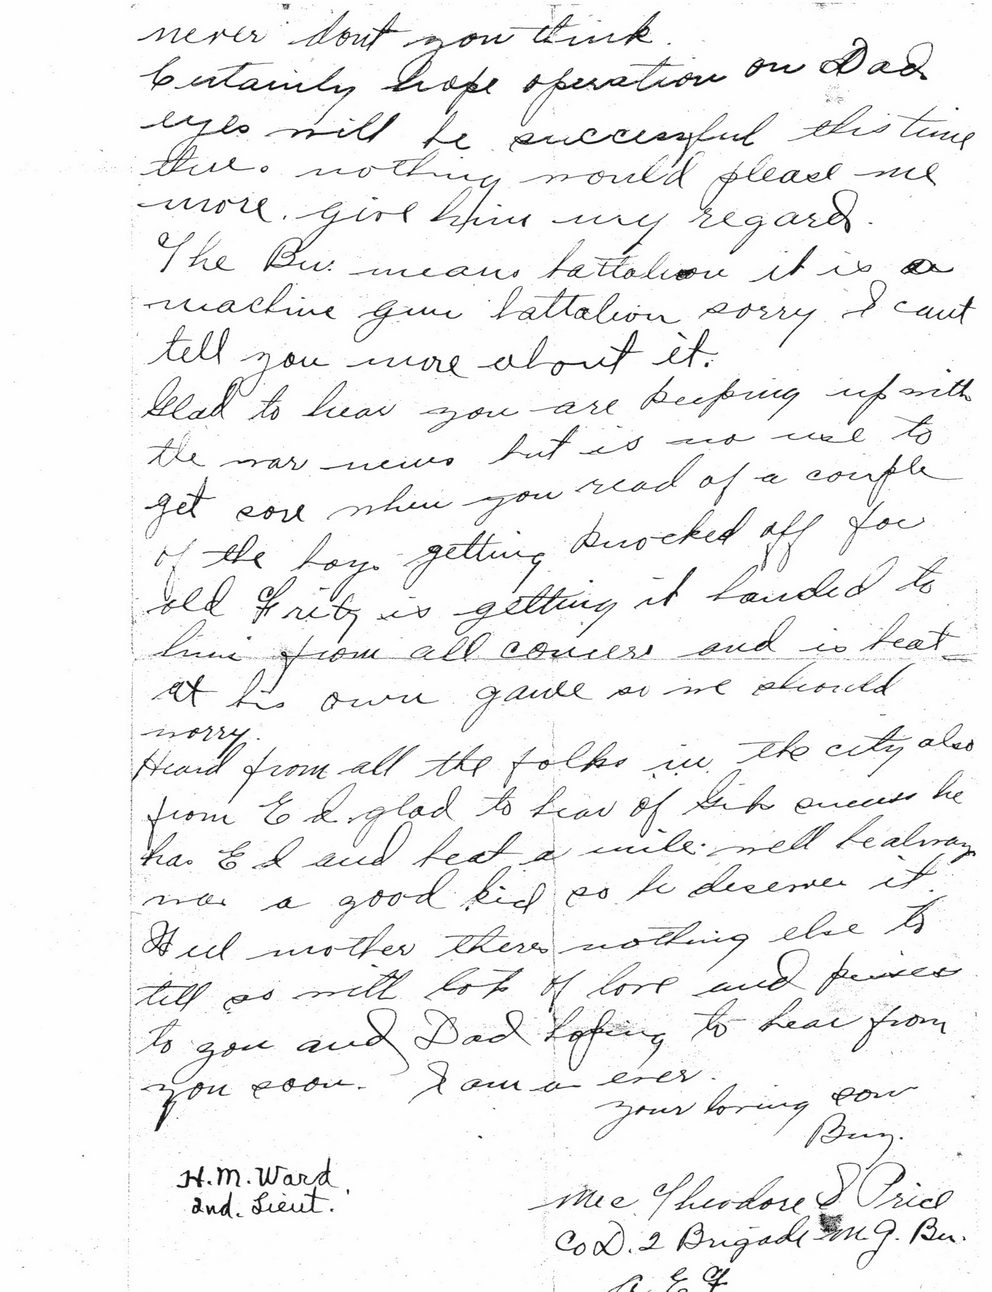 never dont you think.
Certainly hope operation on Dad
eyes will be successful this time
nothing would please me
more. give him my regard.
The Bn. means battalion it is a
machine gun battalion sorry I cant
tell you more about it.
Glad to hear you are keeping up with
the war news but is no use to
get sore when you read of a couple
of the boys getting knocked off for
old Fritz is getting it handed to
him from all corners and is beat
at his own game so we should
worry.
Heard from all the folks in the city also
from Ed. glad to hear of success he
has Ed and beat a mile. well he always
was a good kid so he deserves it.
Well mother theres nothing else to
tell so with lots of love and kisses
to you and Dad hoping to hear from
you soon. I am as ever.
your loving son
H. M. Ward
2nd. Lieut.
Mec. Theodore S Price
Co D. 2 Brigade M. G. Bn.
A. E. F.